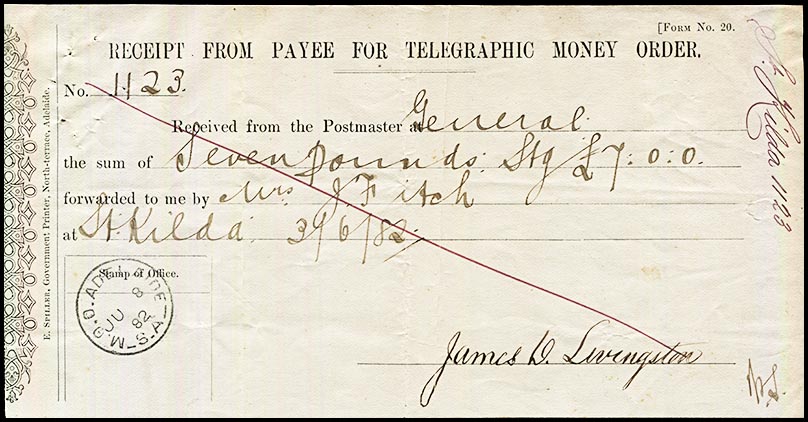 [FORM No. 20.
RECEIPT FROM PAYEE FOR TELEGRAPHIC MONEY ORDER.
No. 1123.
Received from the Postmaster at General.
the sum of Seven Pounds. Stg £7:0:0.
forwarded to me by Mrs J Fitch
at St. Kilda. 3/6/82
Stamp of Office.
G.P.O. ADELAIDE
JU 8
82
M-S.A
James D. Livingston
E. SPILLER, Government Printer, North-terrace, Adelaide.
St. Kilda 1123